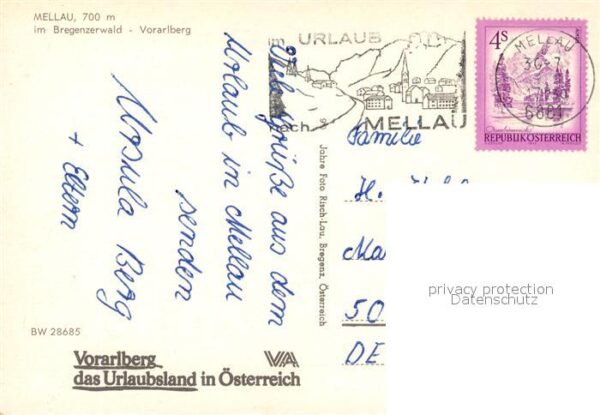 MELLAU, 700 m
im Bregenzerwald - Vorarlberg
Liebe Grüße aus dem
Urlaub in Mellau
senden
Ursula Berg
+ Eltern
BW 28685
Vorarlberg
das Urlaubsland in Österreich
VA
Jahre Foto Risch-Lau, Bregenz, Österreich
URLAUB
MELLAU
MELLAU
6881
4S
REPUBLIK ÖSTERREICH
Familie
H.
Ma
50
DE
privacy protection
Datenschutz